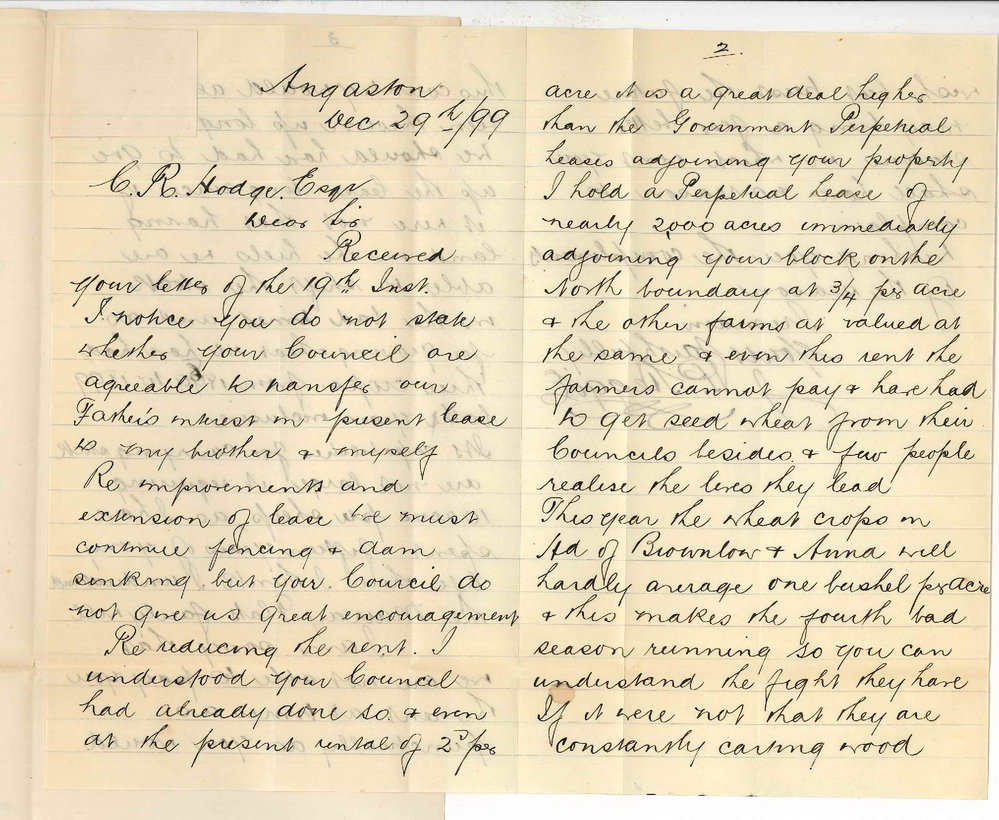 Angaston
Dec 29th/99
C. R. Hodge. Esqr
Dear Sir
Received
your letter of the 19th Inst.
I notice you do not state
whether your Council are
agreeable to transfer our
Father's interest in present lease
to my brother & myself
Re improvements and
extension of lease we must
continue fencing & dam
sinking but your Council do
not give us great encouragement
Re reducing the rent. I
understood your Council
had already done so & even
at the present rental of 2d per
2.
acre it is a great deal higher
than the Government Perpetual
Leases adjoining your property
I hold a Perpetual Lease of
nearly 2,000 acres immediately
adjoining your block on the
North boundary at 3/4 per acre
& the other farms at valued at
the same & even this rent the
farmers cannot pay & have had
to get seed wheat from their
Councils besides & few people
realise the lives they lead
This year the wheat crops in
Hd of Brownlow & Anna will
hardly average one bushel per acre
& this makes the fourth bad
season running so you can
understand the fight they have
If it were not that they are
constantly carting wood